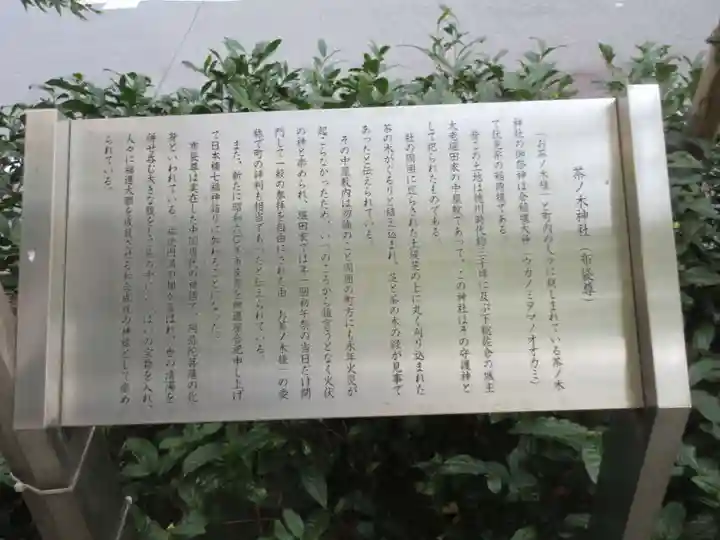 茶ノ木神社(布袋尊)
「お茶ノ木様」と町内の人々に親しまれている茶ノ木
神社の御祭神は倉稲魂大神(ウカノミタマノオオカミ)
で伏見系の稲荷様である。
昔この土地は徳川時代約三千坪に及ぶ下総佐倉の城主
大老堀田家の中屋敷であって、この神社はその守護神と
して祀られたものである。
社の周囲に巡らされた土堤芝の上に丸く刈り込まれた
茶の木がぐるりと植え込まれ、芝と茶の木の緑が見事で
あったと伝えられている。
その中屋敷内は勿論のこと周囲の町方にも永年火災が
起こらなかったため、いつのころからか誰言うとなく火伏
の神と崇められ、堀田家では年一回初午祭の当日だけ開
門して一般の参拝を自由にされた由「お茶ノ木様」の愛
称で町の評判も相当であったと伝えられている。
また、新たに昭和六〇年布袋尊を御遷座合祀申し上げ
て日本橋七福神詣りに加わることになった。
布袋尊は実在した中国唐代の禅僧で、阿弥陀菩薩の化
身といわれている。
円満の相が喜ばれ、世の清濁を
併せ呑む大きな腹をし、袋の中に
の宝物を入れ、
人々に福運大願を成就させる和合成就の神様として崇め
られている。